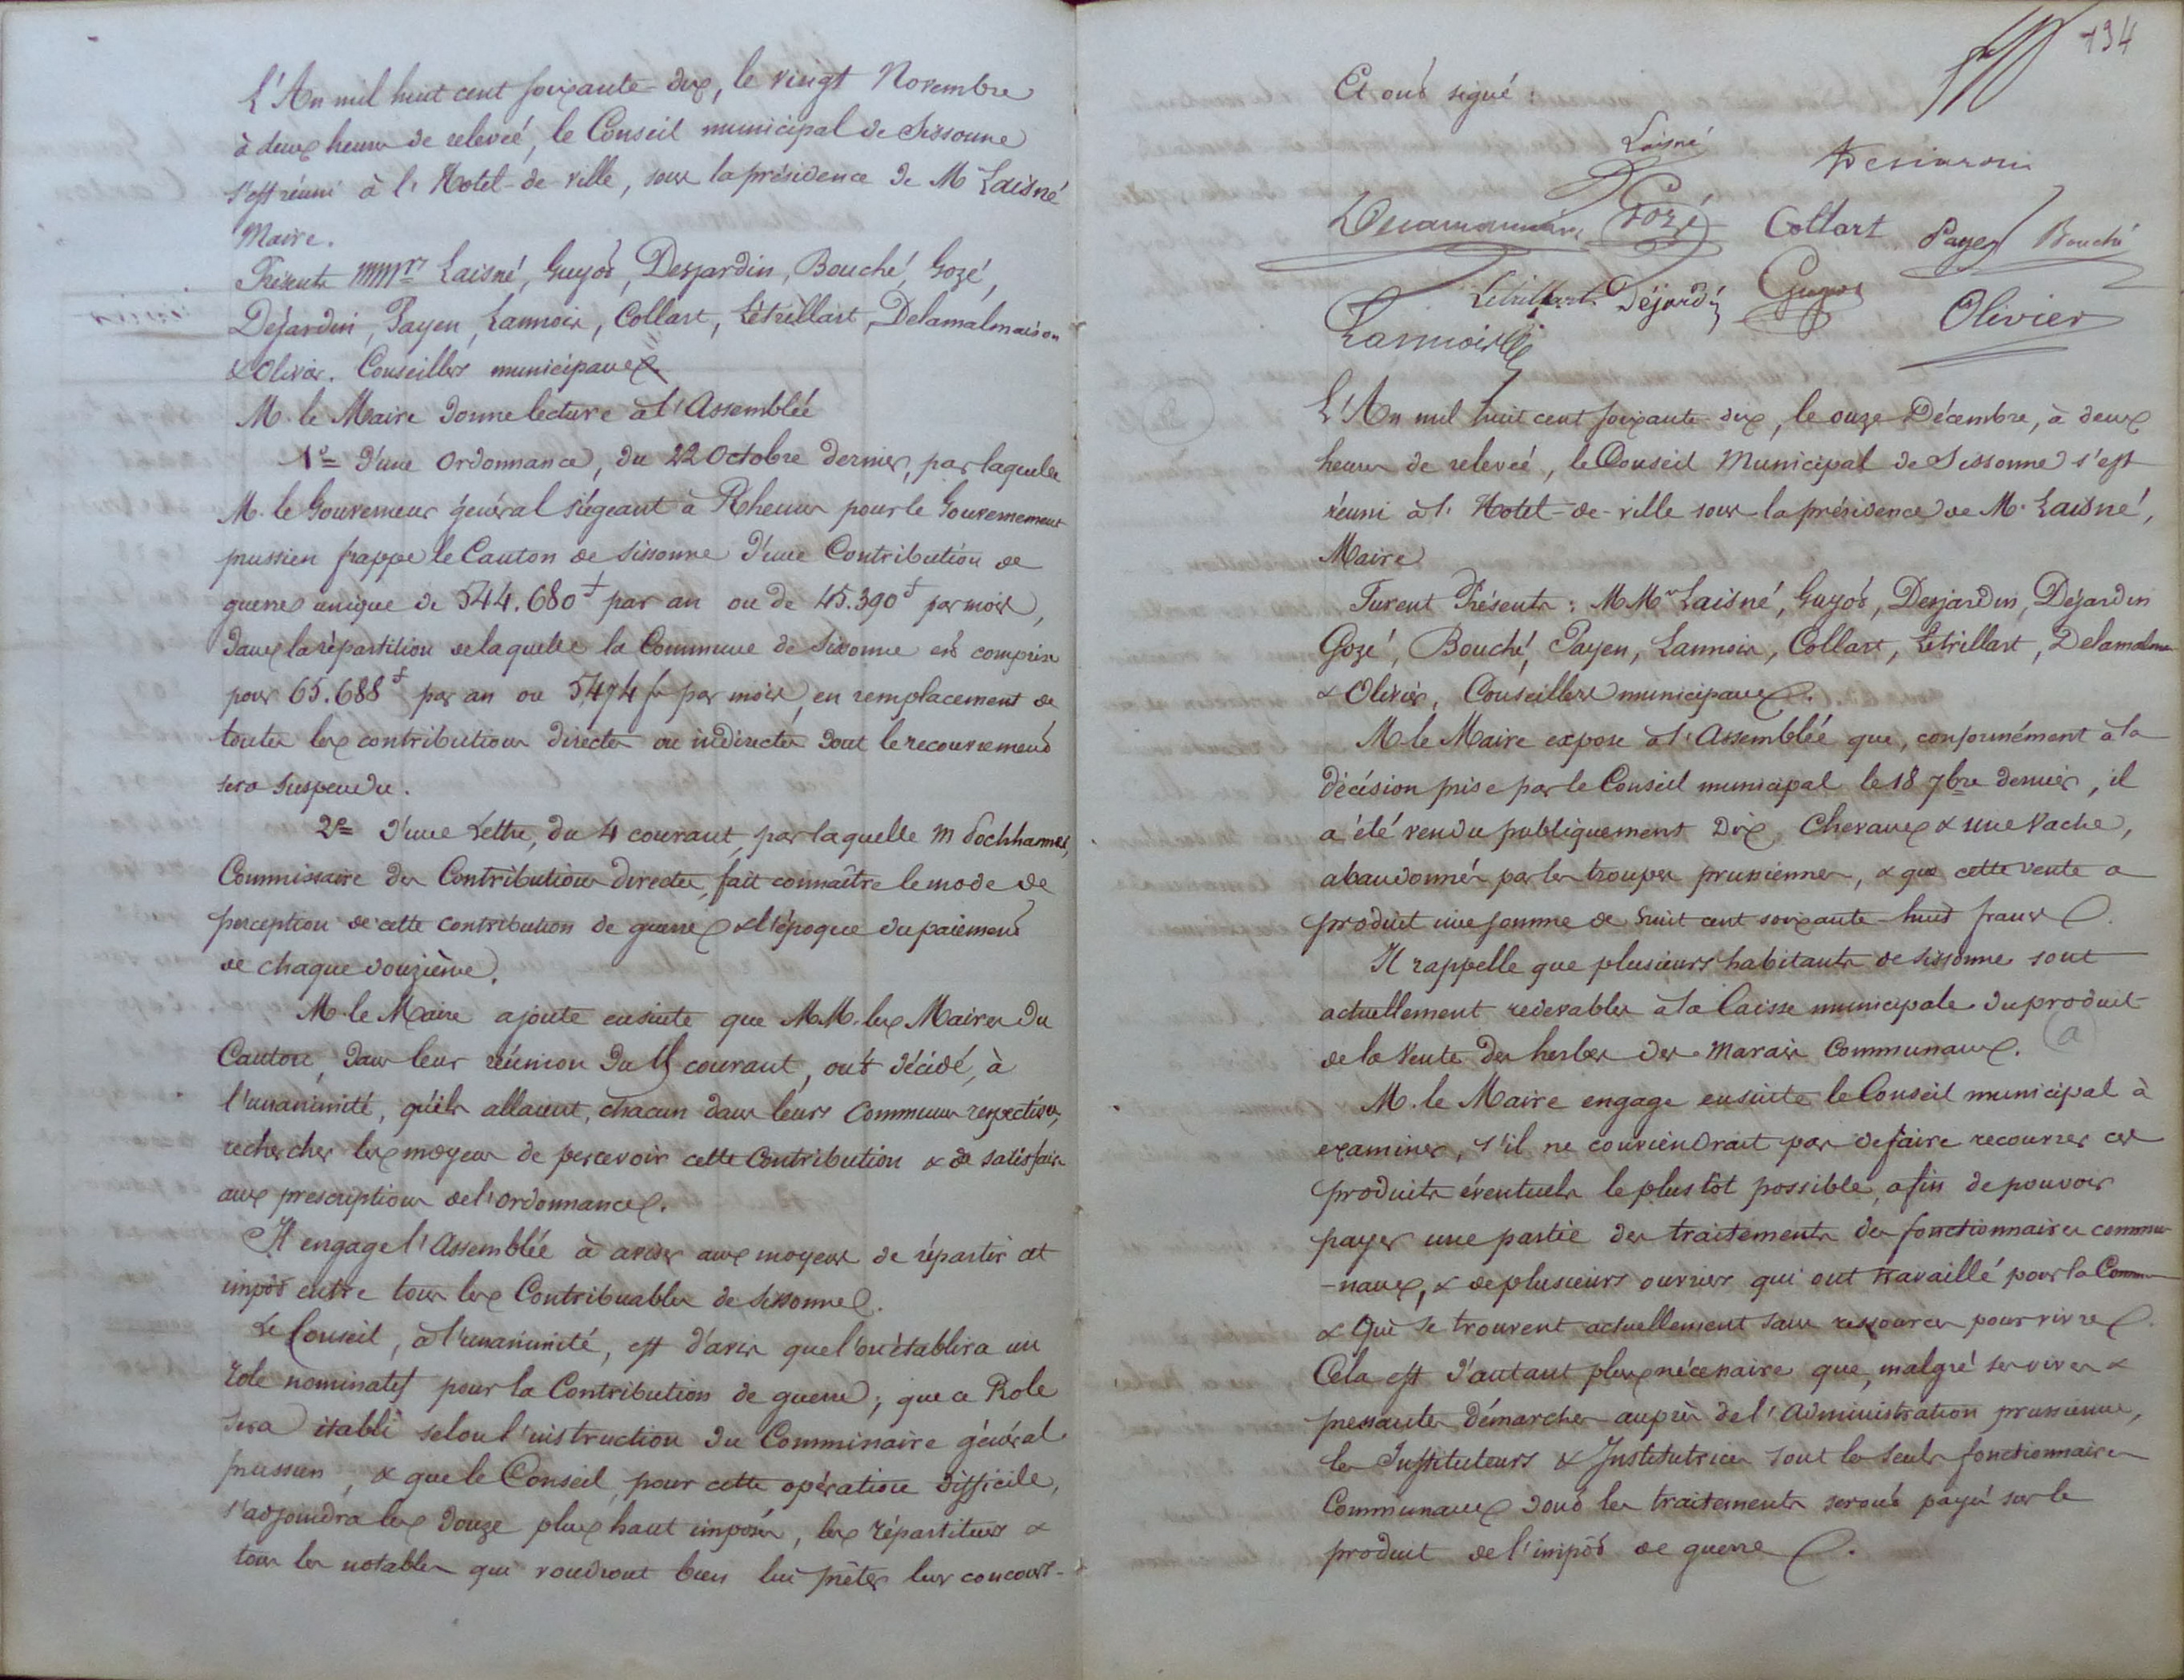 L'An mil huit cent soixante-dix, le vingt Novembre
à deux heures de relevée, le Conseil municipal de Sissonne
s'est réuni à l'Hotel-de-ville, sous la présidence de M Laisné
Maire.
Présents MMrs Laisné, Guyot, Desjardin, Bouché, Gozé,
Déjardin, Payen, Lannois, Collart, Létrillart, Delamalmaison
& Olivier. Conseillers municipaux.
M. le Maire donne lecture à l'Assemblée
1e d'une Ordonnance, du 22 Octobre dernier, par laquelle
M. le Gouverneur général siégeant à Rheims pour le Gouvernement
prussien frappe le Canton de Sissonne d'une Contribution de
guerre unique de 544.680f par an ou de 45.390f par mois,
dans la répartition de laquelle la Commune de Sissonne est comprise
pour 65.688f par an ou 5,474 fr par mois, en remplacement de
toutes les contributions directes ou indirectes dont le recouvrement
sera suspendu.
2e d'une Lettre, du 4 courant, par laquelle M Pochhammer,
Commissaire des Contributions directes, fait connaître le mode de
perception de cette contribution de guerre & l'époque du paiement
de chaque douzième.
M. le Maire ajoute ensuite que MM. les Maires du
Canton, dans leur réunion du courant, ont décidé, à
l'unanimité, qu'ils allaient, chacun dans leurs Communes respectives,
rechercher les moyens de percevoir cette Contribution & de satisfaire
aux prescriptions de l'ordonnance.
Il engage l'Assemblée à aviser aux moyens de répartir cet
impôt entre tous les Contribuables de Sissonne.
Le Conseil, à l'unanimité, est d'avis que l'on établira un
rôle nominatif pour la Contribution de guerre; que ce Role
sera établi selon l'instruction du Commissaire général
prussien, & que le Conseil, pour cette opération difficile,
s'adjoindra les douze plus haut imposés, les répartiteurs &
tous les notables qui voudront bien lui prêter leur concours-
134
Et ont signé :
Laisné
Desjardin
Delamalmaison Gozé Collart Payen Bouché
Létrillart Déjardin Guyot Olivier
Lannois
L'An mil huit cent soixante-dix, le onze Décembre, à deux
heures de relevée, le Conseil Municipal de Sissonne s'est
réuni à l'Hotel-de-ville sous la présidence de M. Laisné,
Maire
Furent Présents : MMrs Laisné, Guyot, Desjardin, Déjardin
Gozé, Bouché, Payen, Lannois, Collart, Létrillart, Delamalm
& Olivier, Conseillers municipaux.
M. le Maire expose à l'Assemblée que, conformément à la
décision prise par le Conseil municipal le 18 7bre dernier, il
a été vendu publiquement dix Chevaux & une Vache,
abandonnés par les troupes prussiennes, & que cette vente a
produit une somme de huit cent soixante-huit francs.
Il rappelle que plusieurs habitants de Sissonne sont
actuellement redevables à la Caisse municipale du produit
de la Vente des herbes des Marais Communaux. (a)
M. le Maire engage ensuite le Conseil municipal à
examiner, s'il ne conviendrait pas de faire recouvrer ces
produits éventuels le plus tôt possible, afin de pouvoir
payer une partie des traitements des fonctionnaires commu
-naux, & de plusieurs ouvriers qui ont travaillé pour la Comm
& qui se trouvent actuellement sans ressources pour vivre.
Cela est d'autant plus nécessaire que, malgré ses vives &
pressantes démarches auprès de l'Administration prussienne,
les Instituteurs & Institutrices sont les seuls fonctionnaires
Communaux dont les traitements seront payés sur le
produit de l'impôt de guerre.